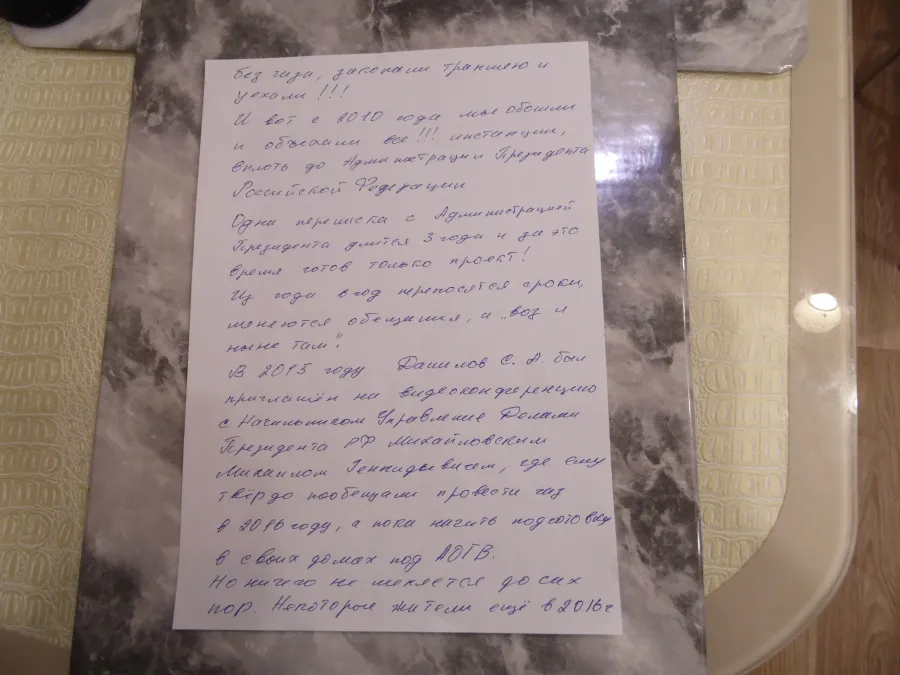 без газа, закопали траншею и
уехали!!!
И вот с 2010 года мы обошли
и объехали все!!! инстанции,
вплоть до Администрации Президента
Российской Федерации.
Одна переписка с Администрацией
Президента длится 3 года и за это
время готов только проект!
Из года в год переносятся сроки,
меняются обещания, а „воз и
ныне там".
В 2015 году Данилов С. А. был
приглашён на видеоконференцию
с Начальником Управление Делами
Президента РФ Михайловским
Михаилом Геннидьевичем, где ему
твёрдо пообещали провести газ
в 2016 году, а пока начить подготовку
в своих домах под АОГВ.
Но ничего не меняется до сих
пор. Некоторые жители ещё в 2016 г